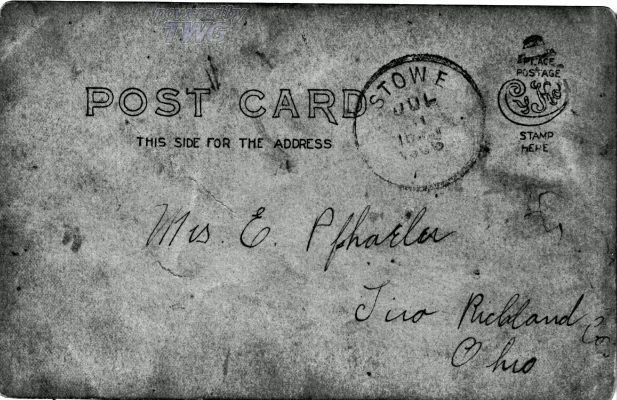 TWG
POST CARD
THIS SIDE FOR THE ADDRESS
STOWE
JUL
1
PLACE
POSTAGE
STAMP
HERE
Mrs. E. Pfhaeler
Tiro Richland Co.
Ohio